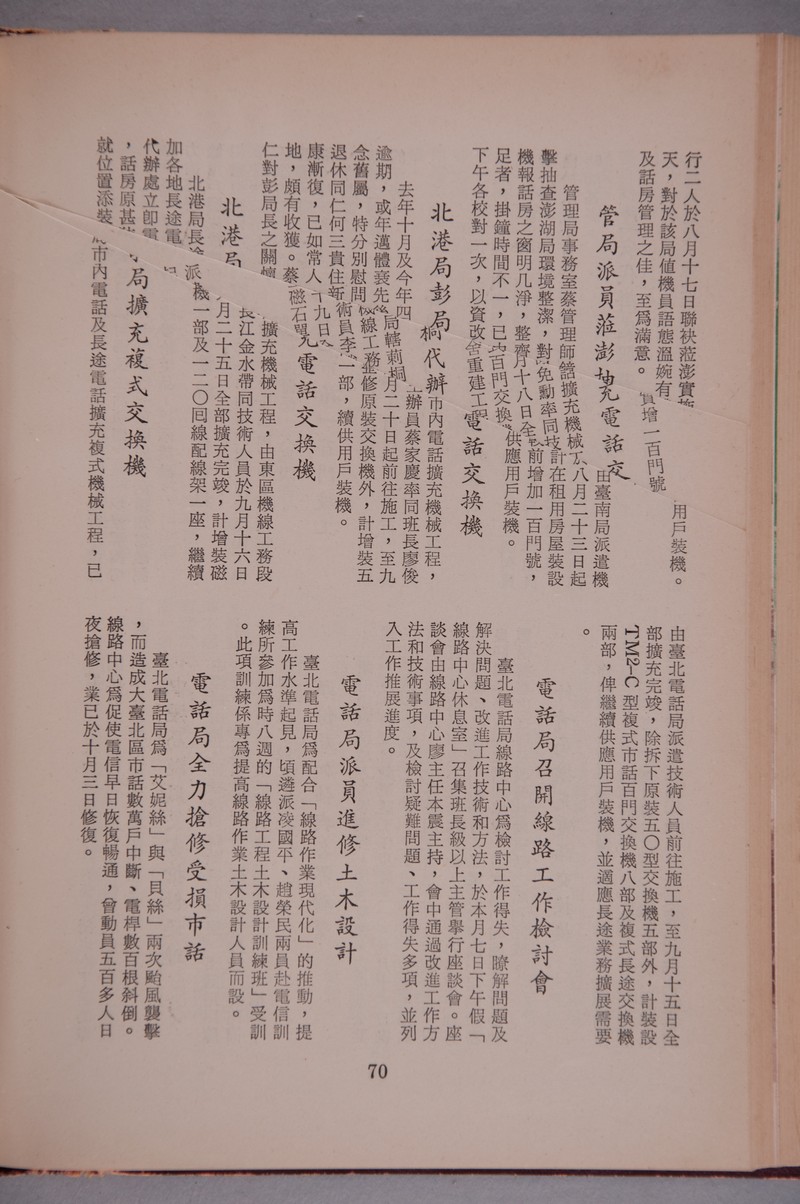 行二人於八月十七日聯袂蒞澎實
天，對於該局値機員語態溫婉有
用戶裝機。
及話房管理之佳，至爲滿意。
增一百門號
管局派員蒞澎
充電話交
由臺南局派遣機
管理局事務室蔡管理師
擴充機械
八月二十三日起
擊抽查澎湖局環境整潔，對
免勳率同技
計在租用房屋裝設
機報話房之窗明几淨，整齊
十八日全
前增加一百門號，
足者，掛鐘時間不一，已
百門交換
供應用戶裝機。
下午各校對一次，以資改
重建工
電話交換機
北港局彭局
代辦
市內電話擴充機械工程，
去年十月及今年四
辦員蔡家慶率同班長廖俊
逾期，或年邁體衰先
局轄莿桐
月二十日起前往施工，至九
念舊屬，特分別慰問
線工務
修原裝交換機外，計增裝五
退休同仁何三貴住新
術員李
一部，續供用戶裝機。
康漸復，已如常人
九日
地，頗有收獲。蔡
磁石
電話交換機
仁對彭局長之關
擴充機械工程，由東區機線工務段
長江金水帶同技術人員於九月十六日
北港局
月二十五日全部擴充完竣，計增裝磁
北港局長途
派
機一部及一二〇回線配線架一座，繼續
加各地長途電
代辦處立卽電
局擴充複式交換機
，話房原甚
就位置添裝
市內電話及長途電話擴充複式機械工程，已
由臺北電話局派遣技術人員前往施工，至九月十五日全
部擴充完竣，除拆下原裝五〇型交換機五部外，計裝設
TM2-C 型複式市話百門交換機八部及複式長途交換機
兩部，俾繼續供應用戶裝機，並適應長途業務擴展需要
。
電話局召開線路工作檢討會
臺北電話局線路中心爲檢討工作得失，瞭解問題及
解決問題、改進工作技術和方法，於本月七日下午假「
線路中心休息室」召集班長級以上主管擧行座談會。座
談會由線路中心廖主任本震主持，會中通過改進工作方
法和技術事項，及檢討疑難問題、工作得失多項，並列
入工作推展進度。
電話局派員進修土木設計
臺北電話局爲配合「線路作業現代化」的推動，提
高工作水準起見，頃遴派凌國平、趙榮民兩員赴電信訓
練所參加爲時八週的「線路工程土木設計訓練班」受訓
。此項訓練係專爲提高線路作業土木設計人員而設。
電話局全力搶修受損市話
臺北電話局爲「艾妮絲」與「貝絲」兩次颱風襲擊
，而造成大臺北區市話數萬戶中斷、電桿數百根斜倒。
線路中心爲促使電信早日恢復暢通，曾動員五百多人日
夜搶修，業已於十月三日修復。
70